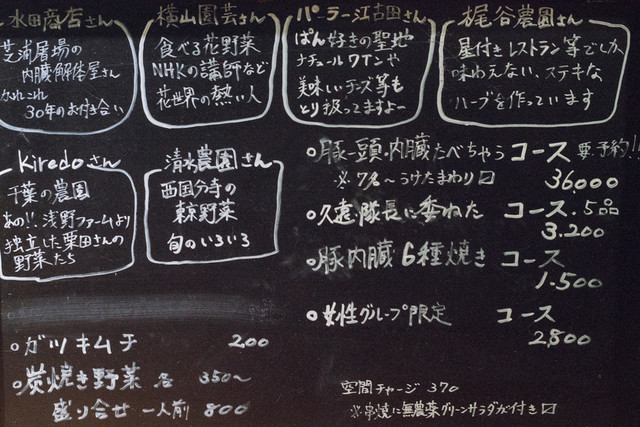 水田商店さん
芝浦屠場の
内臓・解体屋さん
かれこれ
30年のお付き合い
横山園芸さん
食べる花野菜
NHKの講師など
花世界の熱い人
パーラー江古田さん
ぱん好きの聖地
ナチュールワインや
美味いチーズ等も
とり扱ってますよー
梶谷農園さん
星付きレストラン等でしか
味わえない、ステキな
ハーブを作っています
Kiredoさん
千葉の農園
あの!!浅野ファームより
独立した栗田さんの
野菜たち
清水農園さん
西国分寺の
東京野菜
旬のいろいろ
○豚一頭・内臓たべちゃう コース 要予約!!
※7名〜うけたまわり〼 36000
○久遠・隊長に委ねた コース・5品
3.200
○豚内臓6種焼き コース
1.500
○女性グループ限定 コース
2,800
○ガツキムチ 200
○炭焼き野菜 各 350〜
盛り合せ 一人前 800
空間チャージ 370
※串焼に無農薬グリーンサラダが付き〼